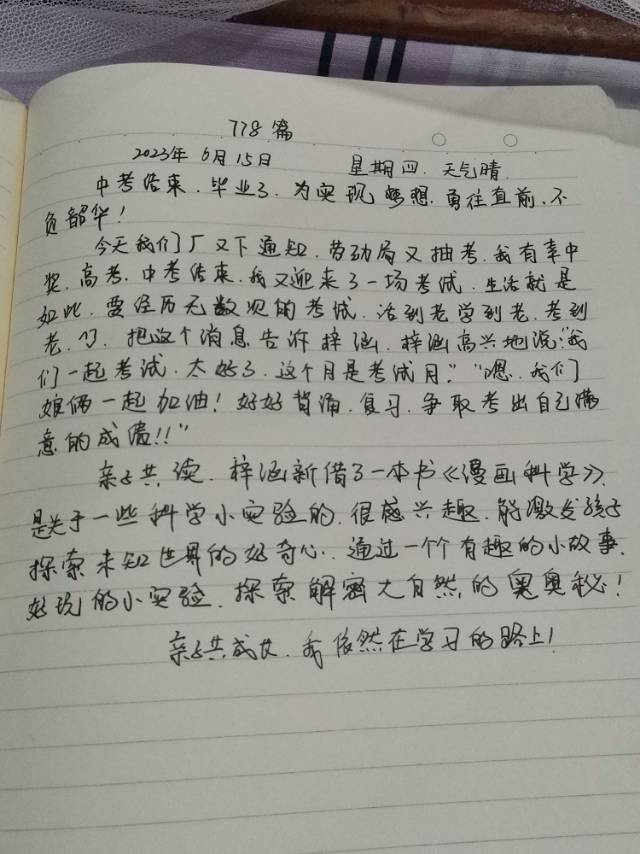 778篇
2023年6月15日 星期四.天气晴.
中考结束.毕业了.为实现梦想.勇往直前.不
负韶华!
今天我们厂又下通知.劳动局又抽考.我有幸中
奖.高考.中考结束.我又迎来了一场考试.生活就是
如此.要经历无数次的考试.活到老学到老.考到
老.把这个消息告诉梓涵.梓涵高兴地说:"我
们一起考试.太好了.这个月是考试月.""嗯.我们
娘俩一起加油!好好背诵.复习.争取考出自己满
意的成绩!!"
亲子共读.梓涵新借了一本书《漫画科学》.
是关于一些科学小实验的.很感兴趣.能激发孩子
探索未知世界的好奇心.通过一个个有趣的小故事.
好玩的小实验.探索解密大自然的奥秘!
亲子共成长.我依然在学习的路上!